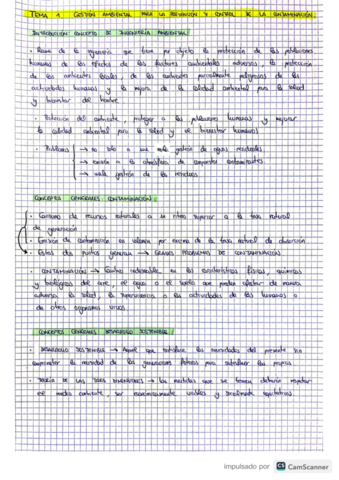 TEMA 1 GESTIÓN AMBIENTAL PARA LA PREVENCIÓN Y CONTROL DE LA CONTAMINACIÓN
INTRODUCCIÓN CONCEPTO DE INGENIERÍA AMBIENTAL
· Rama de la ingeniería que tiene por objeto la protección de las poblaciones
humanas de los efectos de los factores ambientales adversos, la protección
de los ambientes locales, de los ambientes potencialmente peligrosos de las
actividades humanas y la mejora de la calidad ambiental para la salud
y bienestar del hombre
· Protección del ambiente, proteger a las poblaciones humanas y mejorar
la calidad ambiental para la salud y el bienestar humanos
· Problemas → no hubo o una mala gestión de aguas residuales
→ emisión a la atmósfera de compuestos contaminantes
→ mala gestión de los residuos
CONCEPTOS GENERALES CONTAMINACIÓN
· Consumo de recursos naturales a un ritmo superior a la tasa natural
de generación
· Emisión de contaminación en valencia por encima de la tasa natural de absorción
· Estos dos puntos generan → GRAVES PROBLEMAS DE CONTAMINACIÓN
· CONTAMINACIÓN → Cambio indeseable en las características físicas, químicas
y biológicas del aire, el agua o el suelo que pueden afectar de manera
adversa la salud, la supervivencia o las actividades de los humanos o
de otros organismos vivos
CONCEPTOS GENERALES DESARROLLO SOSTENIBLE
· DESARROLLO SOSTENIBLE → Aquel que satisface las necesidades del presente sin
comprometer la necesidad de las generaciones futuras para satisfacer las propias
· TEORÍA DE LAS TRES DIMENSIONES → las medidas que se toman deberán respetar
el medio ambiente, ser económicamente viables y socialmente equitativas
impulsado por CS CamScanner